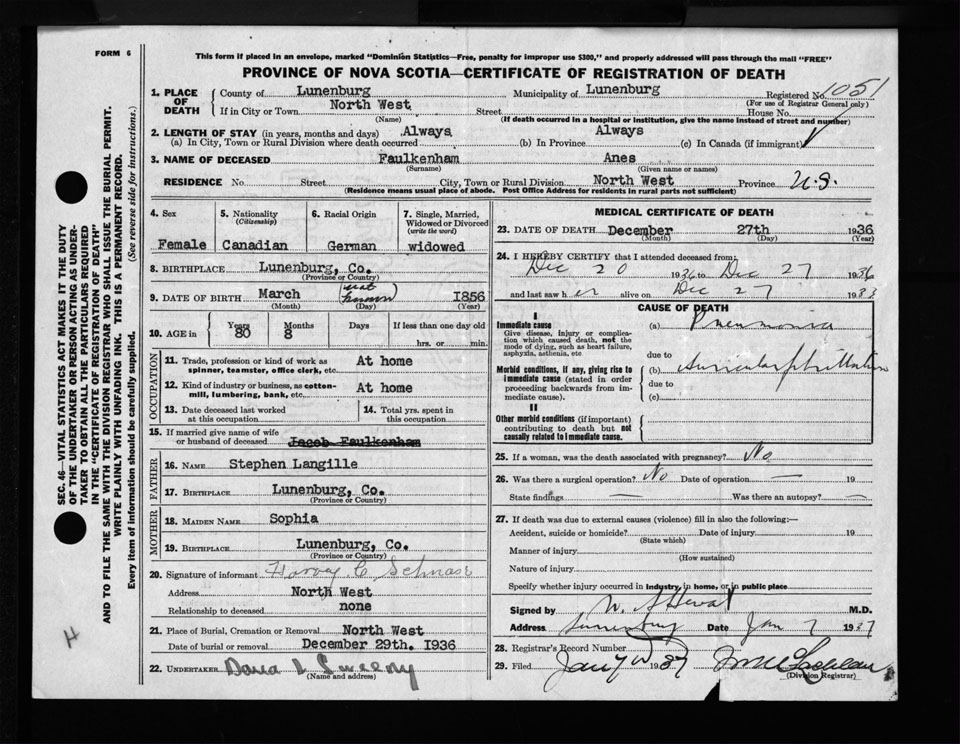 FORM 6
This form if placed in an envelope, marked "Dominion Statistics—Free, penalty for improper use $300," and properly addressed will pass through the mail "FREE"
PROVINCE OF NOVA SCOTIA—CERTIFICATE OF REGISTRATION OF DEATH
1. PLACE OF DEATH
County of Lunenburg Municipality of Lunenburg Registered No. 1051
(For use of Registrar General only)
If in City or Town North West Street House No.
(Name) (If death occurred in a hospital or institution, give the name instead of street and number)
2. LENGTH OF STAY (in years, months and days) Always Always
(a) In City, Town or Rural Division where death occurred (b) In Province (c) In Canada (if immigrant)
3. NAME OF DECEASED Faulkenham Anes
(Surname) (Given name or names)
RESIDENCE No. Street City, Town or Rural Division North West Province
(Residence means usual place of abode. Post Office Address for residents in rural parts not sufficient)
4. Sex
Female
5. Nationality
(Citizenship)
Canadian
6. Racial Origin
German
7. Single, Married, Widowed or Divorced
(write the word)
widowed
8. BIRTHPLACE Lunenburg, Co.
(Province or Country)
9. DATE OF BIRTH March not known 1856
(Month) (Day) (Year)
10. AGE in
Years 80
Months 8
Days
If less than one day old
hrs. or min.
OCCUPATION
11. Trade, profession or kind of work as spinner, teamster, office clerk, etc. At home
12. Kind of industry or business, as cotton-mill, lumbering, bank, etc. At home
13. Date deceased last worked at this occupation
14. Total yrs. spent in this occupation
15. If married give name of wife or husband of deceased Jacob Faulkenham
FATHER
16. NAME Stephen Langille
17. BIRTHPLACE Lunenburg, Co.
(Province or Country)
MOTHER
18. MAIDEN NAME Sophia
19. BIRTHPLACE Lunenburg, Co.
(Province or Country)
20. Signature of informant Harvey C Schnare
Address North West
Relationship to deceased none
21. Place of Burial, Cremation or Removal North West
Date of burial or removal December 29th. 1936
22. UNDERTAKER
(Name and address)
MEDICAL CERTIFICATE OF DEATH
23. DATE OF DEATH December 27th 1936
(Month) (Day) (Year)
24. I HEREBY CERTIFY that I attended deceased from:
Dec 20 1936 to Dec 27 1936
and last saw her alive on Dec 27 1933
CAUSE OF DEATH
I
Immediate cause
Give disease, injury or complication which caused death, not the mode of dying, such as heart failure, asphyxia, asthenia, etc
(a) Pneumonia
due to
Morbid conditions, if any, giving rise to immediate cause (stated in order proceeding backwards from immediate cause).
(b) auricular fibrillation
due to
(c)
II
Other morbid conditions (if important) contributing to death but not causally related to immediate cause.
25. If a woman, was the death associated with pregnancy? No
26. Was there a surgical operation? No Date of operation — 19
State findings — Was there an autopsy? —
27. If death was due to external causes (violence) fill in also the following:—
Accident, suicide or homicide? Date of injury 19
(State which)
Manner of injury
(How sustained)
Nature of injury
Specify whether injury occurred in industry, in home, or in public place
Signed by M.D.
Address Lunenburg Date Jan 7 1937
28. Registrar's Record Number
29. Filed Jany 1937
(Division Registrar)
SEC. 46—VITAL STATISTICS ACT MAKES IT THE DUTY
OF THE UNDERTAKER OR PERSON ACTING AS UNDER-
TAKER TO OBTAIN ALL THE PARTICULARS REQUIRED
IN THE "CERTIFICATE OF REGISTRATION OF DEATH"
AND TO FILE THE SAME WITH THE DIVISION REGISTRAR WHO SHALL ISSUE THE BURIAL PERMIT.
WRITE PLAINLY WITH UNFADING INK. THIS IS A PERMANENT RECORD.
Every item of information should be carefully supplied. (See reverse side for instructions.)